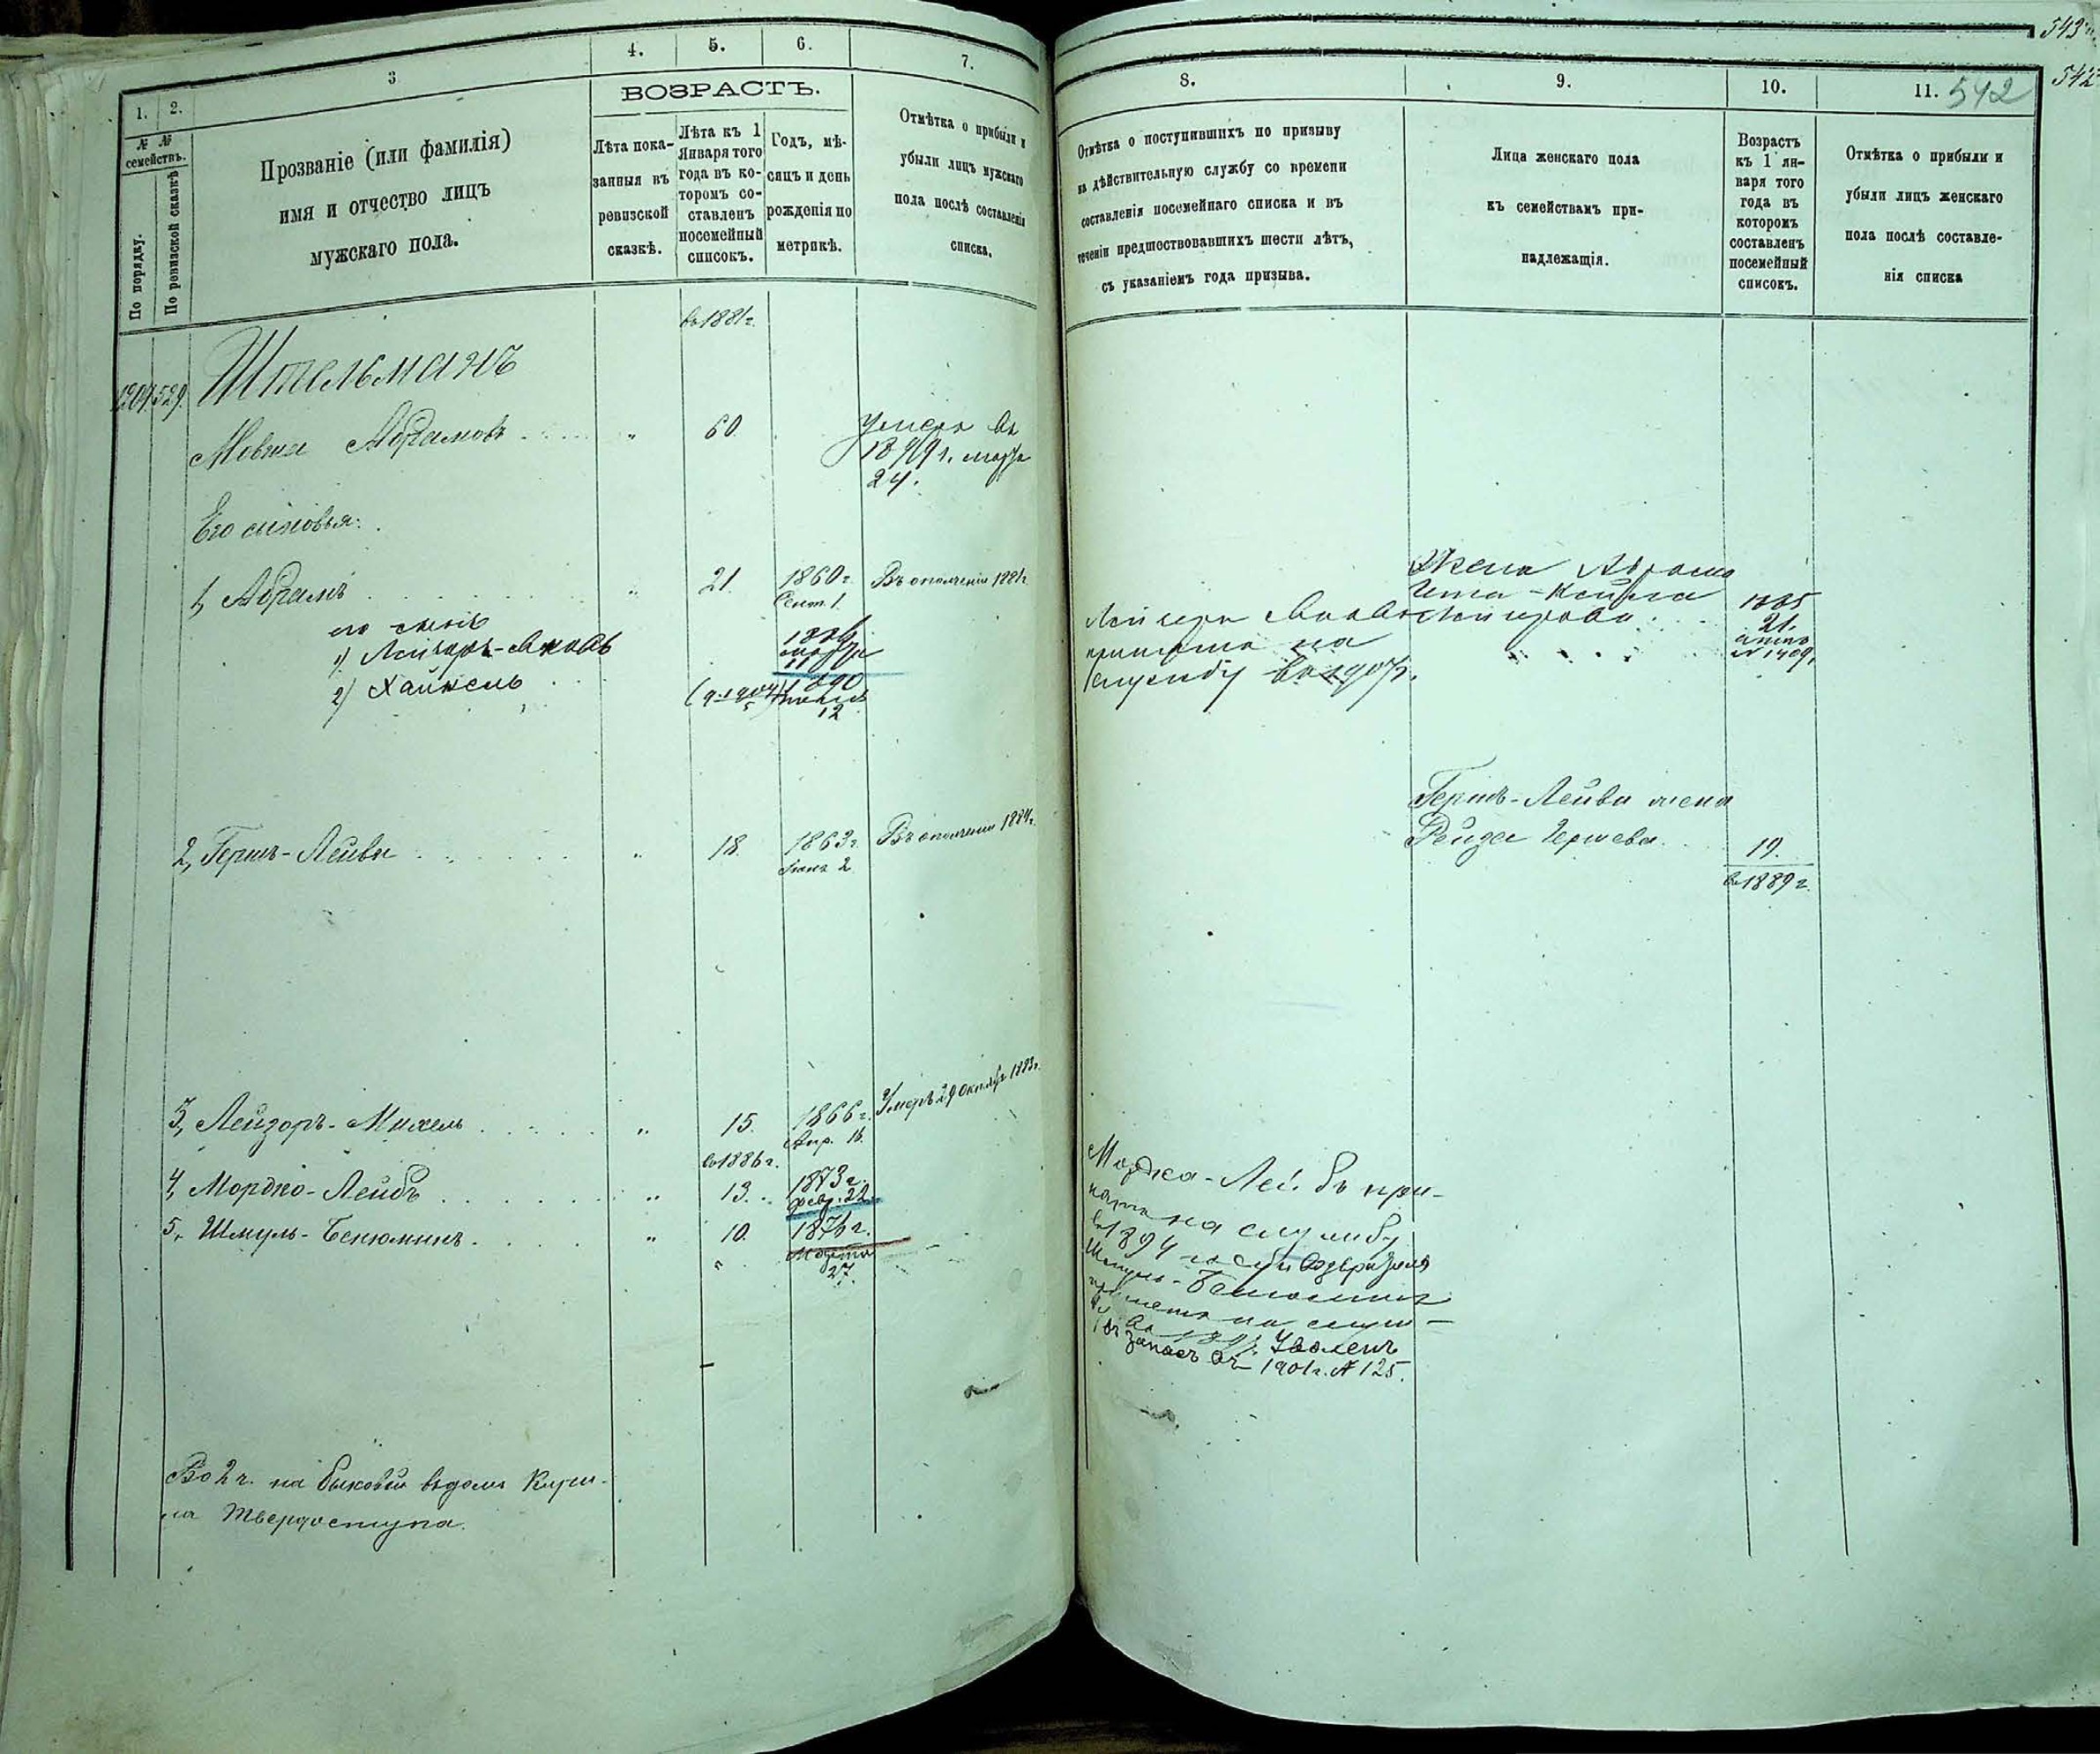 543
542
542
1.
2.
3
4.
5.
6.
7.
№ №
семействъ.
По порядку.
По ревизской сказкѣ
Прозваніе (или фамилія)
имя и отчество лицъ
мужскаго пола.
ВОЗРАСТЪ.
Лѣта пока-
занныя въ
ревизской
сказкѣ.
Лѣта къ 1
Января того
года въ ко-
торомъ со-
ставленъ
посемейный
списокъ.
Годъ, мѣ-
сяцъ и день
рожденія по
метрикѣ.
Отмѣтка о прибыли и
убыли лицъ мужскаго
пола послѣ составленія
списка.
въ 1881 г.
1204. 529.
Штельманъ
Мовша Абрамовъ
"
60
Умеръ въ
марта
24.
Его сыновья:
1, Абрамъ
"
21.
1860 г.
Сент. 1.
Въ ополченіи 1881 г.
его сынъ
1)
марта
11
2) Хаимель
1890
12
2, Гершъ-Лейба
"
18.
1863 г.
2
Въ ополченіи 1884 г.
3, Лейзоръ-Михель
"
15.
1866 г.
Апр. 16.
Умеръ 29 Октября
въ 1886 г.
4, Мордко-Лейбъ
"
13.
1873 г.
февр. 22
5, Шмуль-Бенюминъ
"
10.
1876 г.
Марта
27.
Во 2 ч. на
8.
9.
10.
11.
Отмѣтка о поступившихъ по призыву
на дѣйствительную службу со времени
составленія посемейнаго списка и въ
теченіи предшествовавшихъ шести лѣтъ,
съ указаніемъ года призыва.
Лица женскаго пола
къ семействамъ при-
надлежащія.
Возрастъ
къ 1 ян-
варя того
года въ
которомъ
составленъ
посемейный
списокъ.
Отмѣтка о прибыли и
убыли лицъ женскаго
пола послѣ составле-
нія списка
Жена Абрама
1885
21.
принятъ на
службу въ 1907 г.
Гершъ-Лейбы жена
Рейза Гершева
19.
въ 1889 г.
Мордка-Лейбъ при-
нятъ на службу
въ 1894
Шмуль-Бенюминъ
принятъ на служ-
Уволенъ
въ запасъ въ 1901 г. № 125.